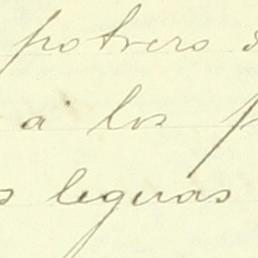 potrero
á los
leguas